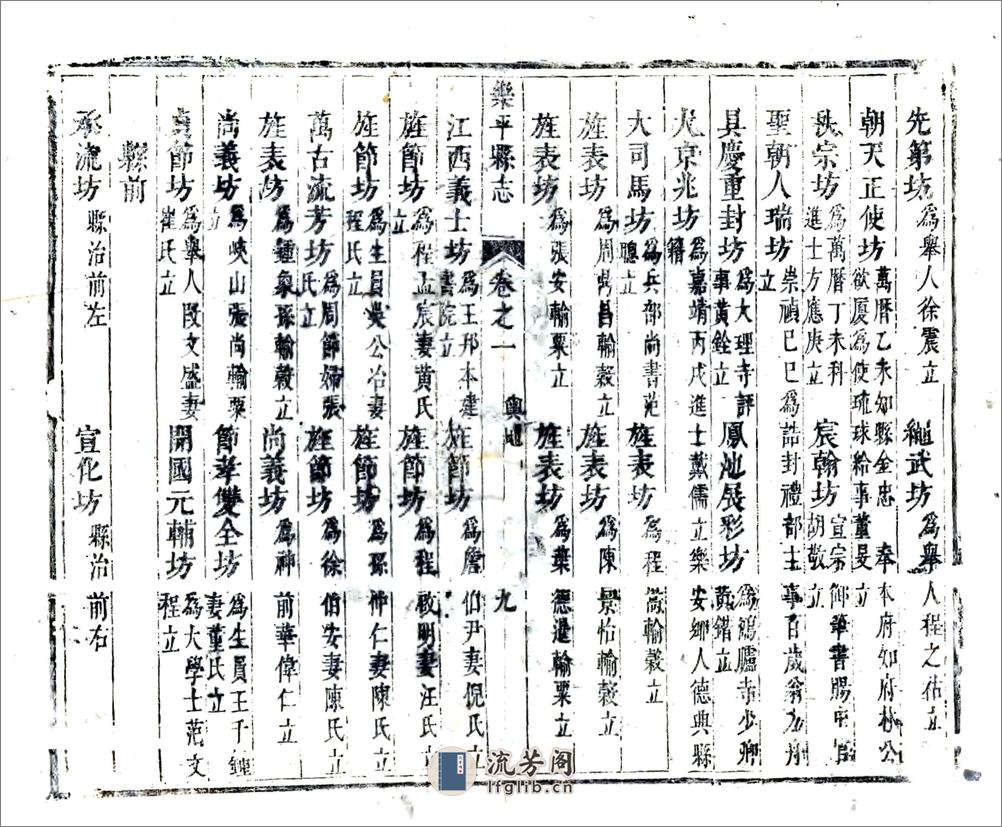 先第坊 爲舉人徐震立 繩武坊 爲舉人程之祜立
朝天正使坊 萬曆乙未知縣金忠奉本府知府林公欲厦爲使琉球給事董旻立
秩宗坊 爲萬曆丁未科進士方應庚立 宸翰坊 宣宗御筆書賜中官胡敬立
聖朝人瑞坊 崇禎己巳爲誥封禮部主事百歲翁方舟立
具慶重封坊 爲大理寺評事黃銓立 鳳池展彩坊 爲鴻臚寺少卿黃鍇立
大京兆坊 爲嘉靖丙戌進士戴儒立樂安鄉人德興縣籍
大司馬坊 爲兵部尚書范聰立 旌表坊 爲程 輸榖立
旌表坊 爲周 昌輸榖立 旌表坊 爲陳景怡輸榖立
旌表坊 爲張安輸粟立 旌表坊 爲葉德暹輸粟立
樂平縣志 卷之一 輿地 九
江西義士坊 爲王邦本建書院立 旌節坊 爲詹伯尹妻倪氏立
旌節坊 爲程孟宸妻黃氏立 旌節坊 爲程啟明妻汪氏立
旌節坊 爲生員吳公冶妻程氏立 旌節坊 爲孫仲仁妻陳氏立
萬古流芳坊 爲周節婦張氏立 旌節坊 爲徐伯安妻陳氏立
旌表坊 爲鍾象孫輸榖立 尚義坊 爲神前華偉仁立
尚義坊 爲峽山張尚輸粟立 節孝雙全坊 爲生員王于鍾妻董氏立
貞節坊 爲舉人段文盛妻崔氏立 開國元輔坊 爲大學士范文程立
縣前
承流坊 縣治前左 宣化坊 縣治前右
流芳阁
lfglib.cn